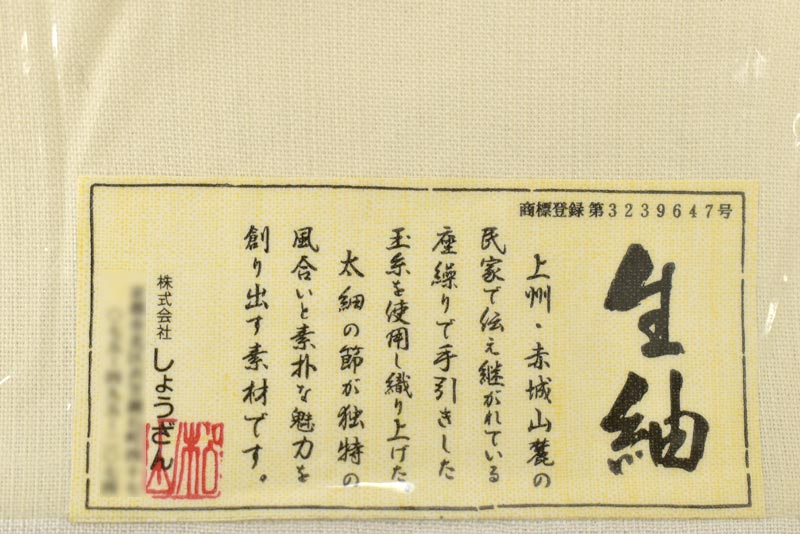 商標登録 第3239647号
生紬
上州・赤城山麓の
民家で伝え継がれている
座繰りで手引きした
玉糸を使用し織り上げた
太細の節が独特の
風合いと素朴な魅力を
創り出す素材です。
株式会社 しょうざん
松山